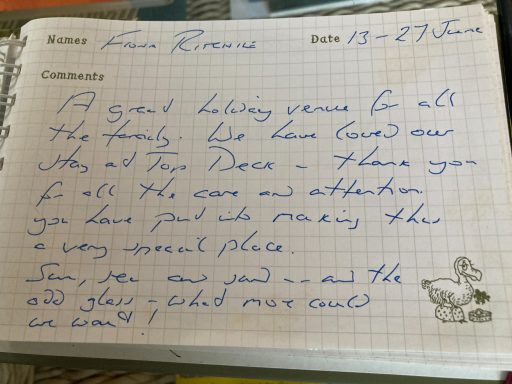 Names Fiona Date 13-27 June
Comments
A great holiday venue for all
the family. We have loved our
stay at Top Deck - thank you
for all the care and attention
you have put into making this
a very special place.
Sun, sea and sand -- and the
odd glass - what more could
we want!